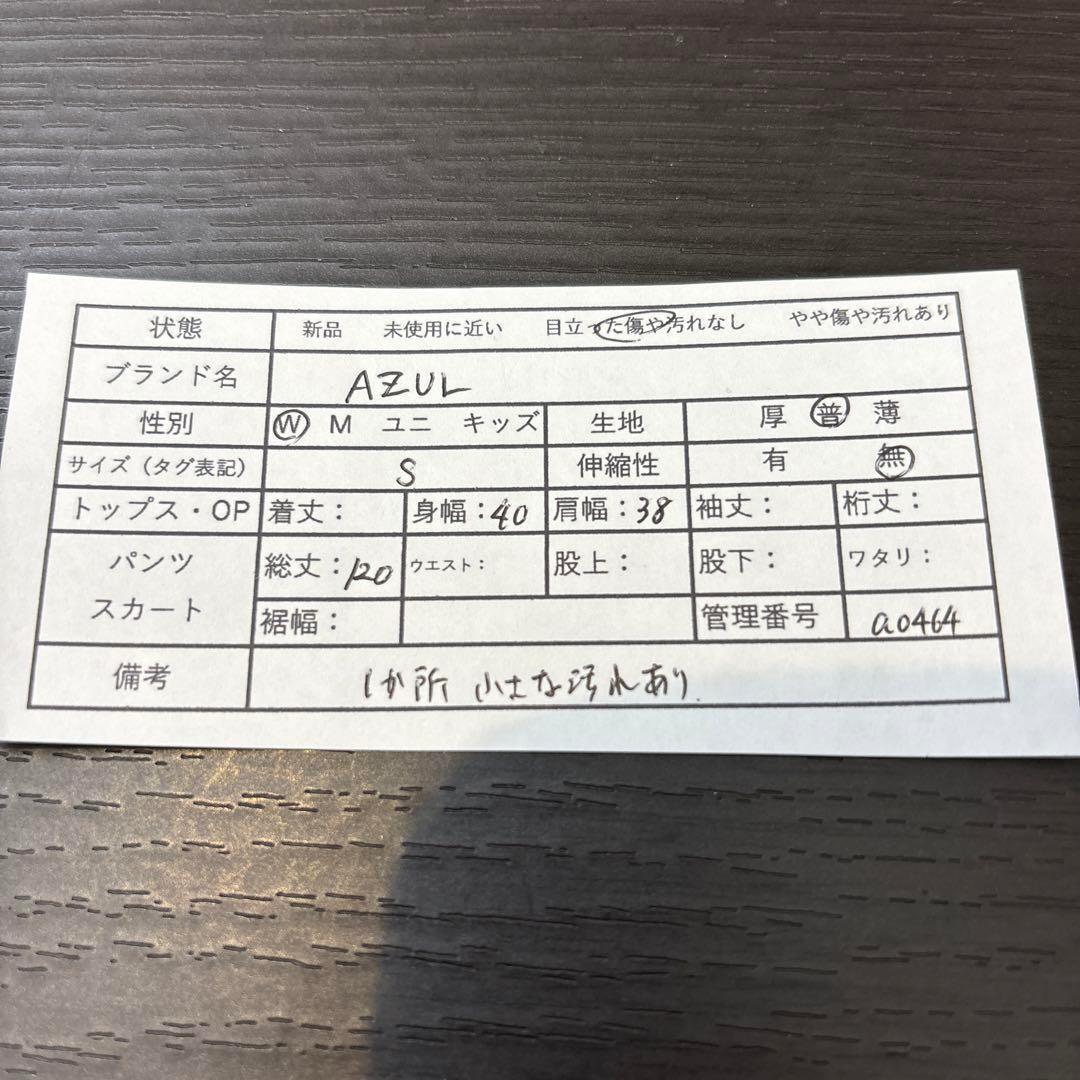 状態 新品 未使用に近い 目立った傷や汚れなし やや傷や汚れあり
ブランド名 AZUL
性別 W M ユニ キッズ 生地 厚 普 薄
サイズ（タグ表記） S 伸縮性 有 無
トップス・OP 着丈： 身幅：40 肩幅：38 袖丈： 桁丈：
パンツ スカート 総丈：120 ウエスト： 股上： 股下： ワタリ：
裾幅： 管理番号 a0464
備考 1か所 小さな汚れあり.